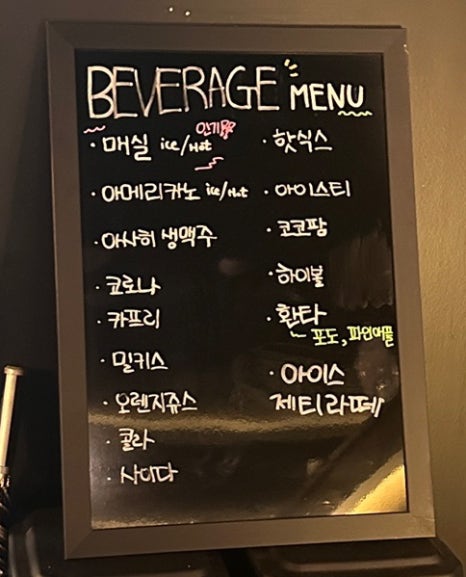 BEVERAGE MENU
· 매실 ice/Hot 인기용
· 아메리카노 ice/Hot
· 아사히 생맥주
· 코로나
· 카프리
· 밀키스
· 오렌지쥬스
· 콜라
· 사이다
· 핫식스
· 아이스티
· 코코팜
· 하이볼
· 환타
포도, 파인애플
· 아이스
제티라떼